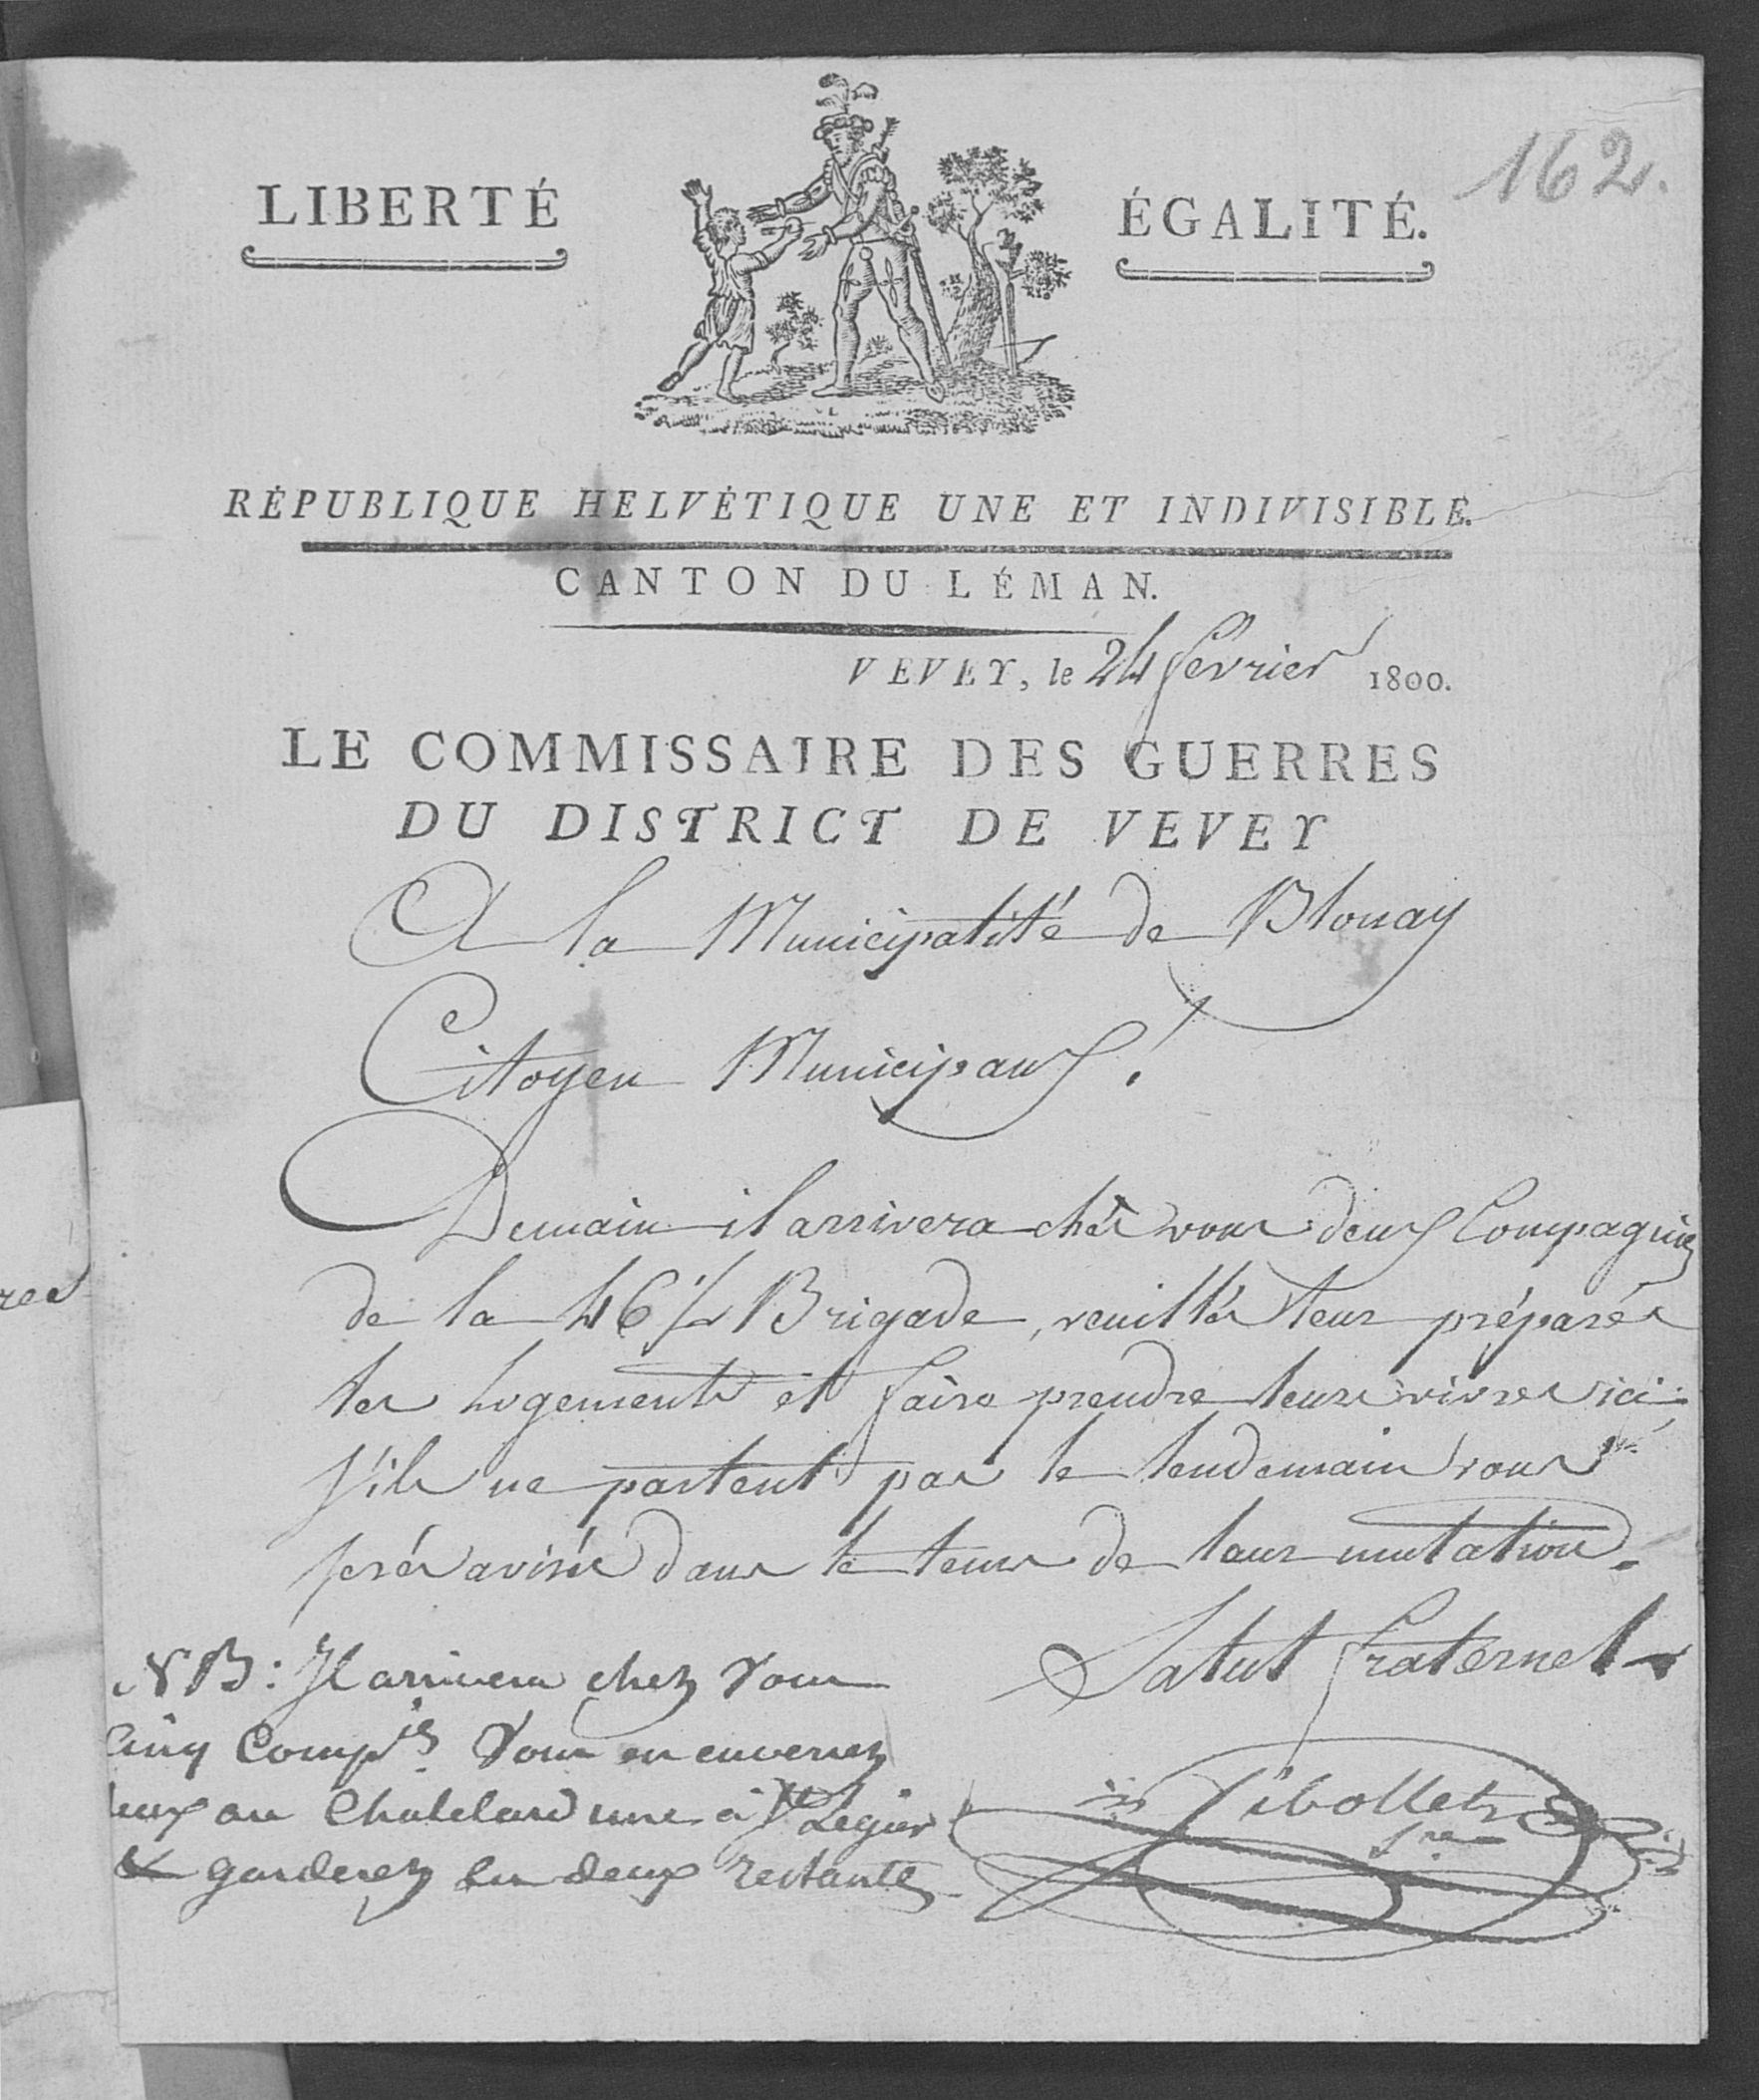 162.
LIBERTÉ ÉGALITÉ.
RÉPUBLIQUE HELVÉTIQUE UNE ET INDIVISIBLE.
CANTON DU LÉMAN.
VEVEY, le 24 fevrier 1800.
LE COMMISSAIRE DES GUERRES
DU DISTRICT DE VEVEY
A la Municipalité de Blonay
Citoyen Municipaux!
Demain il arrivera chés vous deux Compagnies
de la 46 1/2 Brigade, veuillés leur préparés
les logements et faire prendre leurs vivres ici
s'ils ne partent pas le lendemain vous
serés avisés dans le tems de leur mutation.
Salut fraternel
NB: Il arrivera chez Vous
Cinq Comp.is Vous en enverrez
deux au Chatelard une à St Legier
& garderez les deux restantes